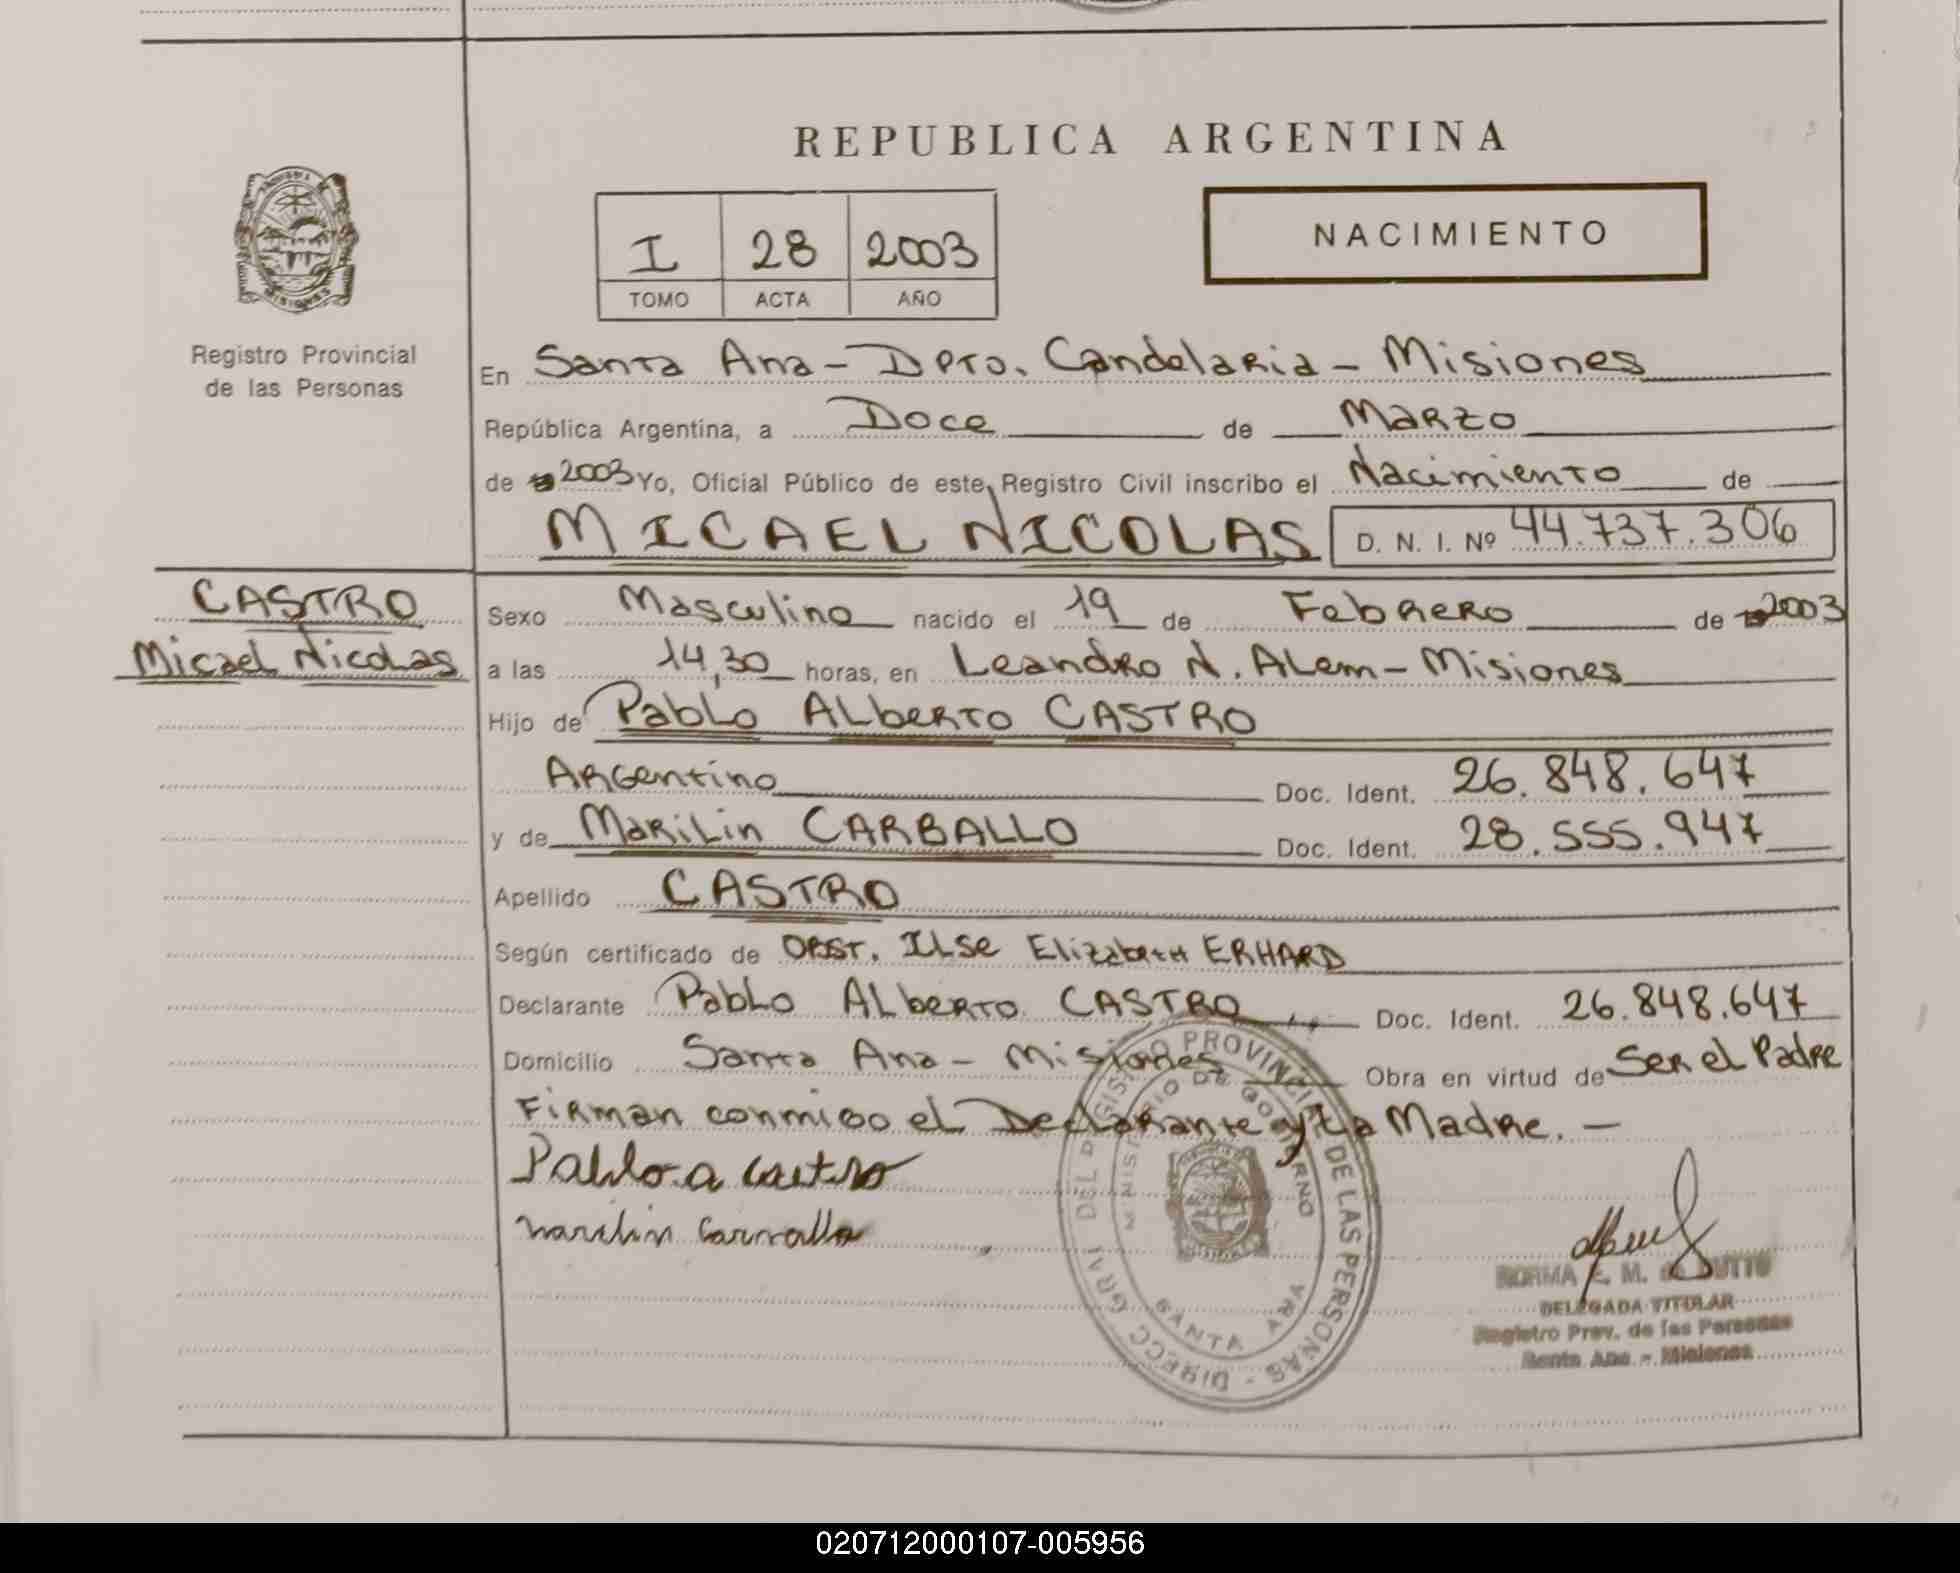 REPUBLICA ARGENTINA
I 28 2003
TOMO ACTA AÑO
NACIMIENTO
MISIONES
Registro Provincial
de las Personas
En Santa Ana - Dpto. Candelaria - Misiones
República Argentina, a Doce de Marzo
de 2003 Yo, Oficial Público de este Registro Civil inscribo el Nacimiento de
MICAEL NICOLAS D. N. I. Nº 44.737.306
CASTRO
Micael Nicolas
Sexo Masculino nacido el 19 de Febrero de 2003
a las 14,30 horas, en Leandro N. Alem - Misiones
Hijo de Pablo Alberto CASTRO
Argentino Doc. Ident. 26.848.647
y de Marilin CARBALLO Doc. Ident. 28.555.947
Apellido CASTRO
Según certificado de OBST. Ilse Elizabeth ERHARD
Declarante Pablo Alberto CASTRO Doc. Ident. 26.848.647
Domicilio Santa Ana - Misiones Obra en virtud de Ser el Padre
Firman conmigo el Declarante y La Madre. -
Pablo a Castro
Marilin Carvallo
DIRECC GRAL DEL REGISTRO PROVINCIAL DE LAS PERSONAS -
MINISTERIO DE GOBIERNO
SANTA ANA
NORMA E. M.
DELEGADA TITULAR
Registro Prov. de las Personas
Santa Ana - Misiones
020712000107-005956